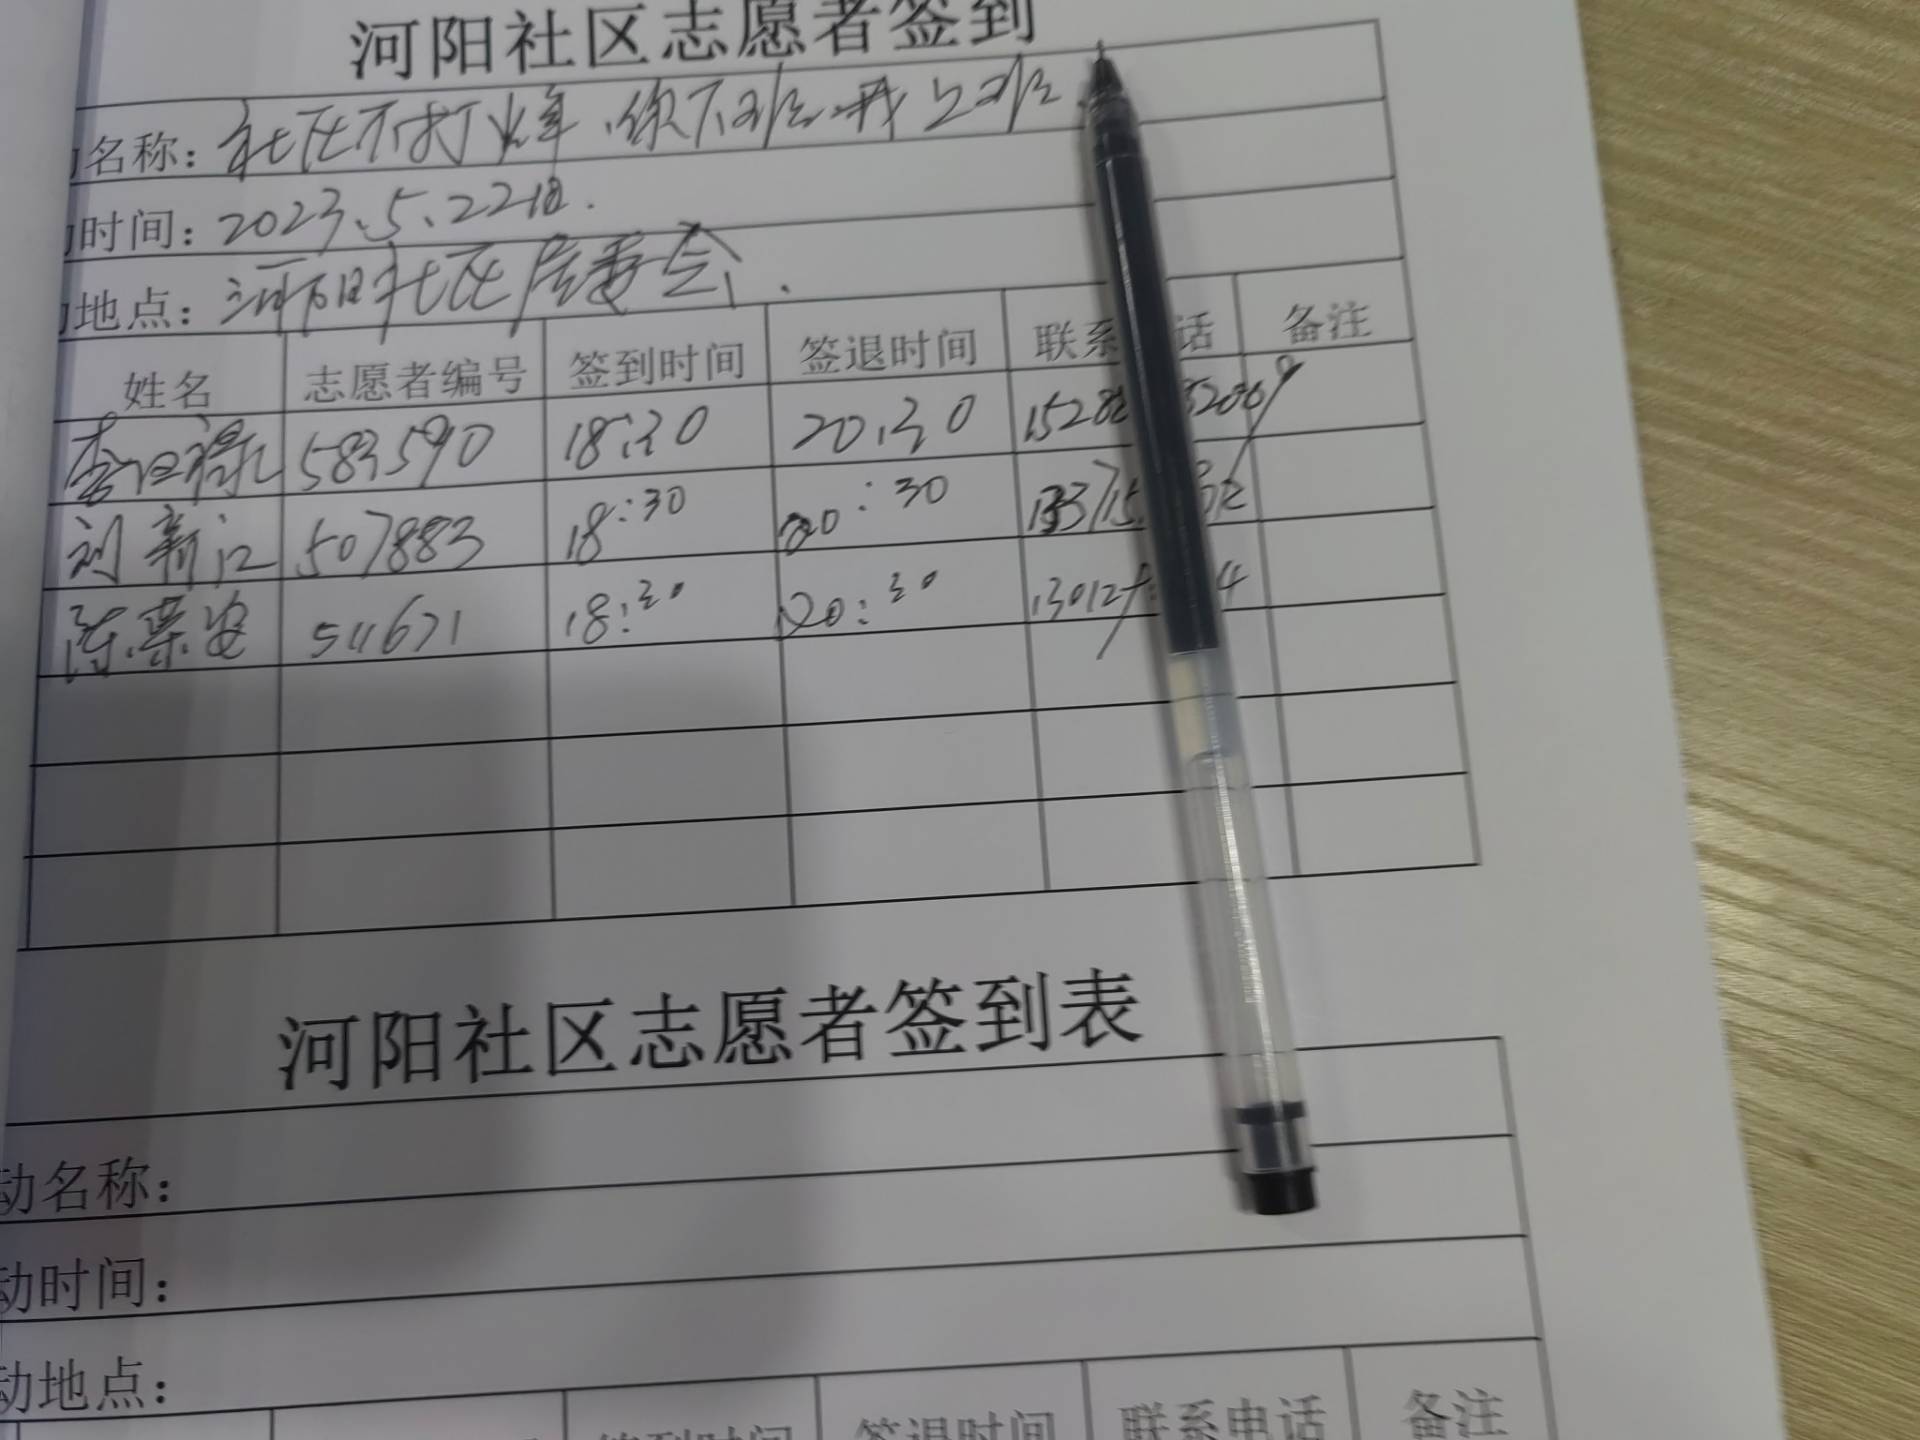 河阳社区志愿者签到
名称：社区不打烊、你下班我上班
时间：2023.5.22日.
地点：河阳社区居委会.
姓名 志愿者编号 签到时间 签退时间 联系 话 备注
583590 18:30 20:30
刘新江 507883 18:30 20:30
陈荣安 511671 18:30 20:30
河阳社区志愿者签到表
动名称：
动时间：
动地点：
签到时间 签退时间 联系电话 备注